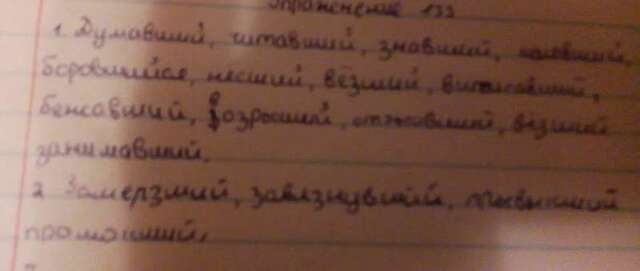 Упражнение 133
1. Думавший, читавший, знавший,
боровшийся, нёсший, вёзший,
бежавший, возросший,
занимавший.
2 Замёрзший, завязнувший, привыкший
промокший,